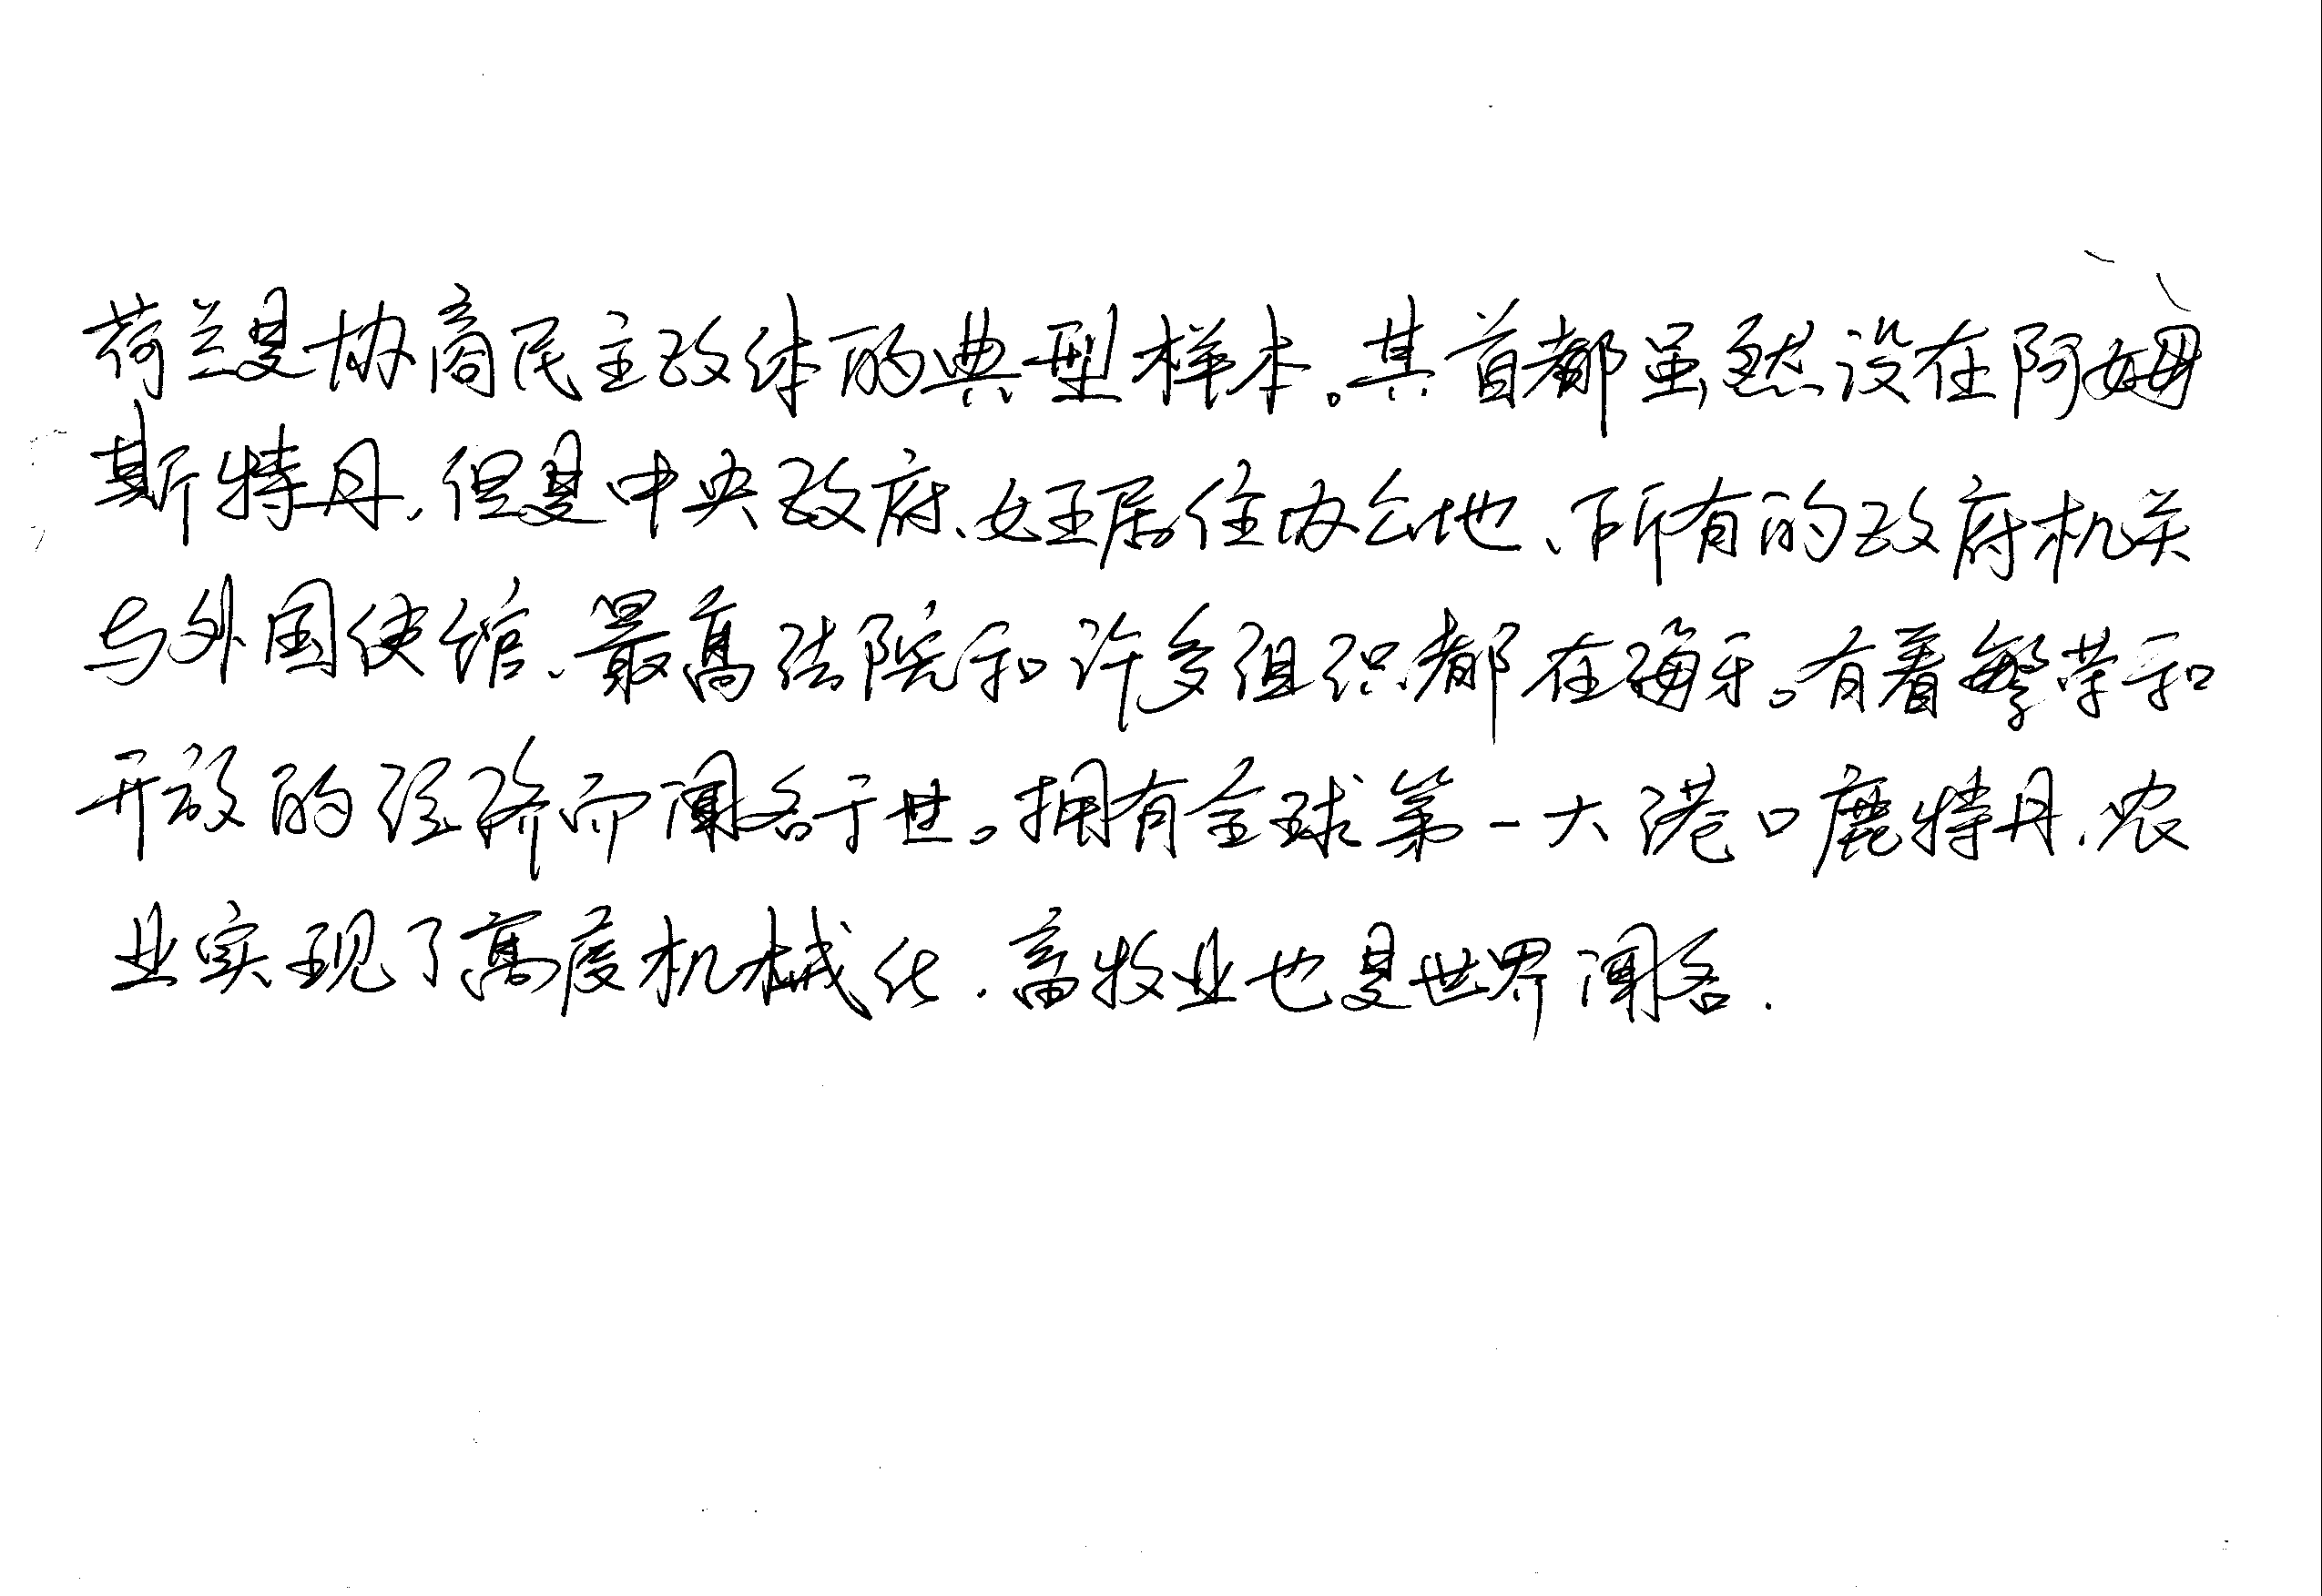 荷兰是协商民主政体的典型样本。其首都虽然设在阿姆
斯特丹,但是中央政府、女王居住办公地、所有的政府机关
与外国使馆、最高法院和许多组织都在海牙。有着繁荣和
开放的经济而闻名于世。拥有全球第一大港口鹿特丹.农
业实现了高度机械化.畜牧业也是世界闻名.